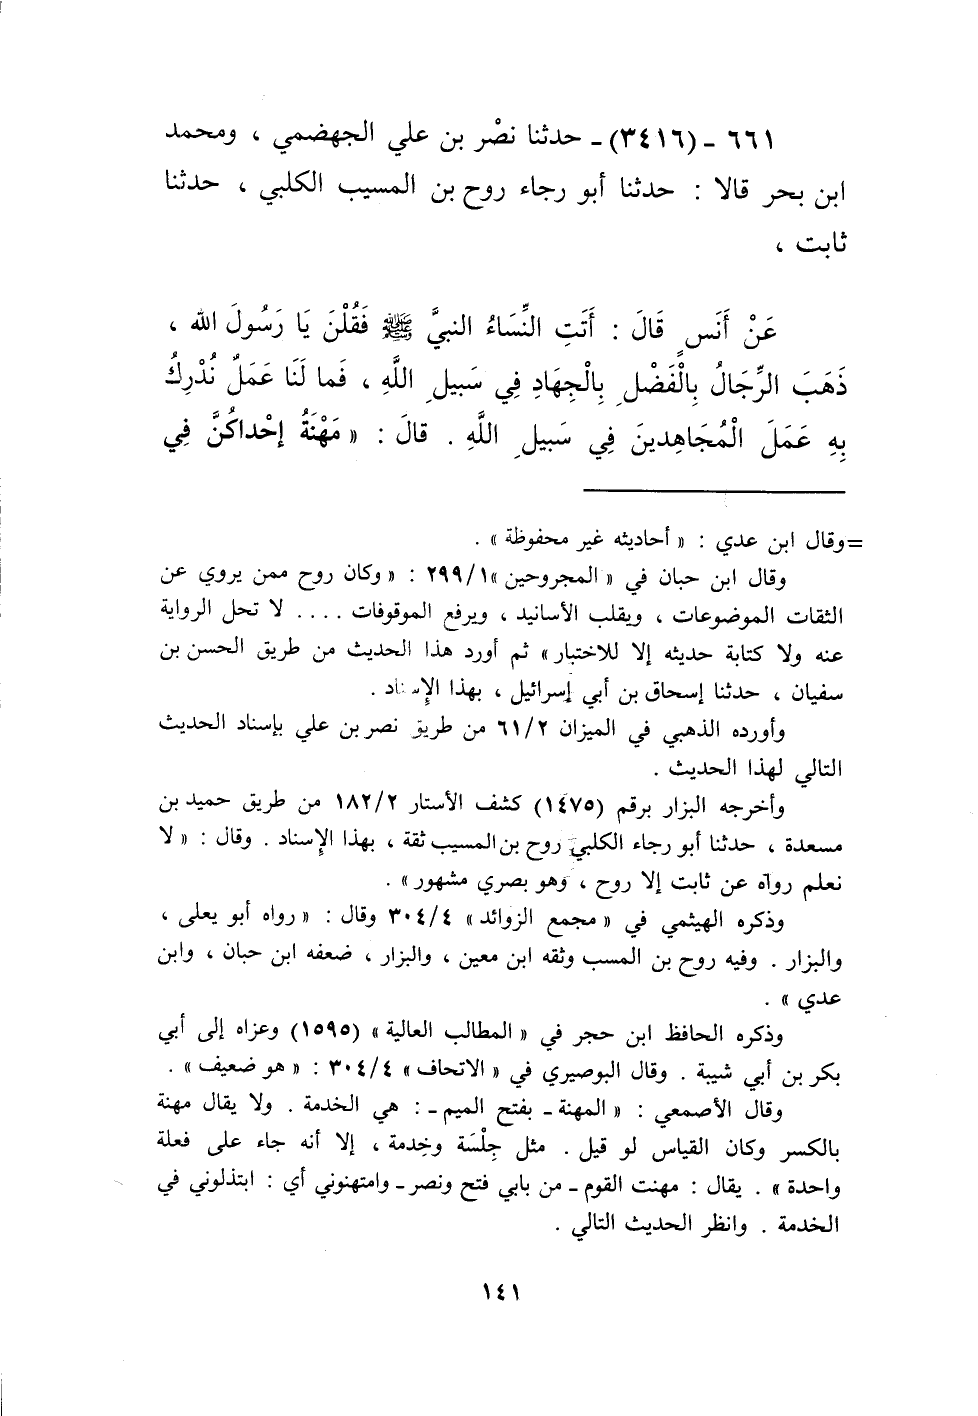 ٦٦١ ـ (٣٤١٦) ـ حدثنا نصْر بن علي الجهضمي ، ومحمد
ابن بحر قالا : حدثنا أبو رجاء روح بن المسيب الكلبي ، حدثنا
ثابت ،
عَنْ أَنَسٍ قَالَ : أَتَتِ النِّسَاءُ النبيَّ ﷺ فَقُلْنَ يَا رَسُولَ الله ،
ذَهَبَ الرِّجَالُ بِالْفَضْلِ بِالْجِهَادِ فِي سَبِيلِ اللَّهِ ، فَما لَنَا عَمَلٌ نُدْرِكُ
بِهِ عَمَلَ الْمُجَاهِدينَ فِي سَبِيلِ اللَّهِ . قالَ : « مَهْنَةُ إحْداكُنَّ فِي
=وقال ابن عدي : « أحاديثه غير محفوظة » .
وقال ابن حبان في « المجروحين »٢٩٩/١ : « وكان روح ممن يروي عن
الثقات الموضوعات ، ويقلب الأسانيد ، ويرفع الموقوفات .... لا تحل الرواية
عنه ولا كتابة حديثه إلا للاختبار » ثم أورد هذا الحديث من طريق الحسن بن
سفيان ، حدثنا إسحاق بن أبي إسرائيل ، بهذا الإسناد .
وأورده الذهبي في الميزان ٦١/٢ من طريق نصر بن علي بإسناد الحديث
التالي لهذا الحديث .
وأخرجه البزار برقم (١٤٧٥) كشف الأستار ١٨٢/٢ من طريق حميد بن
مسعدة ، حدثنا أبو رجاء الكلبي روح بن المسيب ثقة ، بهذا الإسناد . وقال : « لا
نعلم رواه عن ثابت إلا روح ، وهو بصري مشهور » .
وذكره الهيثمي في « مجمع الزوائد » ٣٠٤/٤ وقال : « رواه أبو يعلى ،
والبزار . وفيه روح بن المسب وثقه ابن معين ، والبزار ، ضعفه ابن حبان ، وابن
عدي » .
وذكره الحافظ ابن حجر في « المطالب العالية » (١٥٩٥) وعزاه إلى أبي
بكر بن أبي شيبة . وقال البوصيري في « الاتحاف » ٣٠٤/٤ : « هو ضعيف » .
وقال الأصمعي : « المهنة ـ بفتح الميم ـ : هي الخدمة . ولا يقال مهنة
بالكسر وكان القياس لو قيل . مثل جِلْسَة وخِدمة ، إلا أنه جاء على فعلة
واحدة » . يقال : مهنت القوم ـ من بابي فتح ونصر ـ وامتهنوني أي : ابتذلوني في
الخدمة . وانظر الحديث التالي .
١٤١